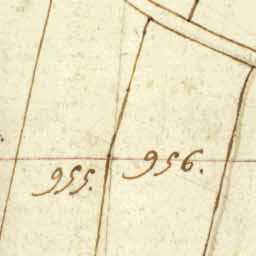 955. 956.